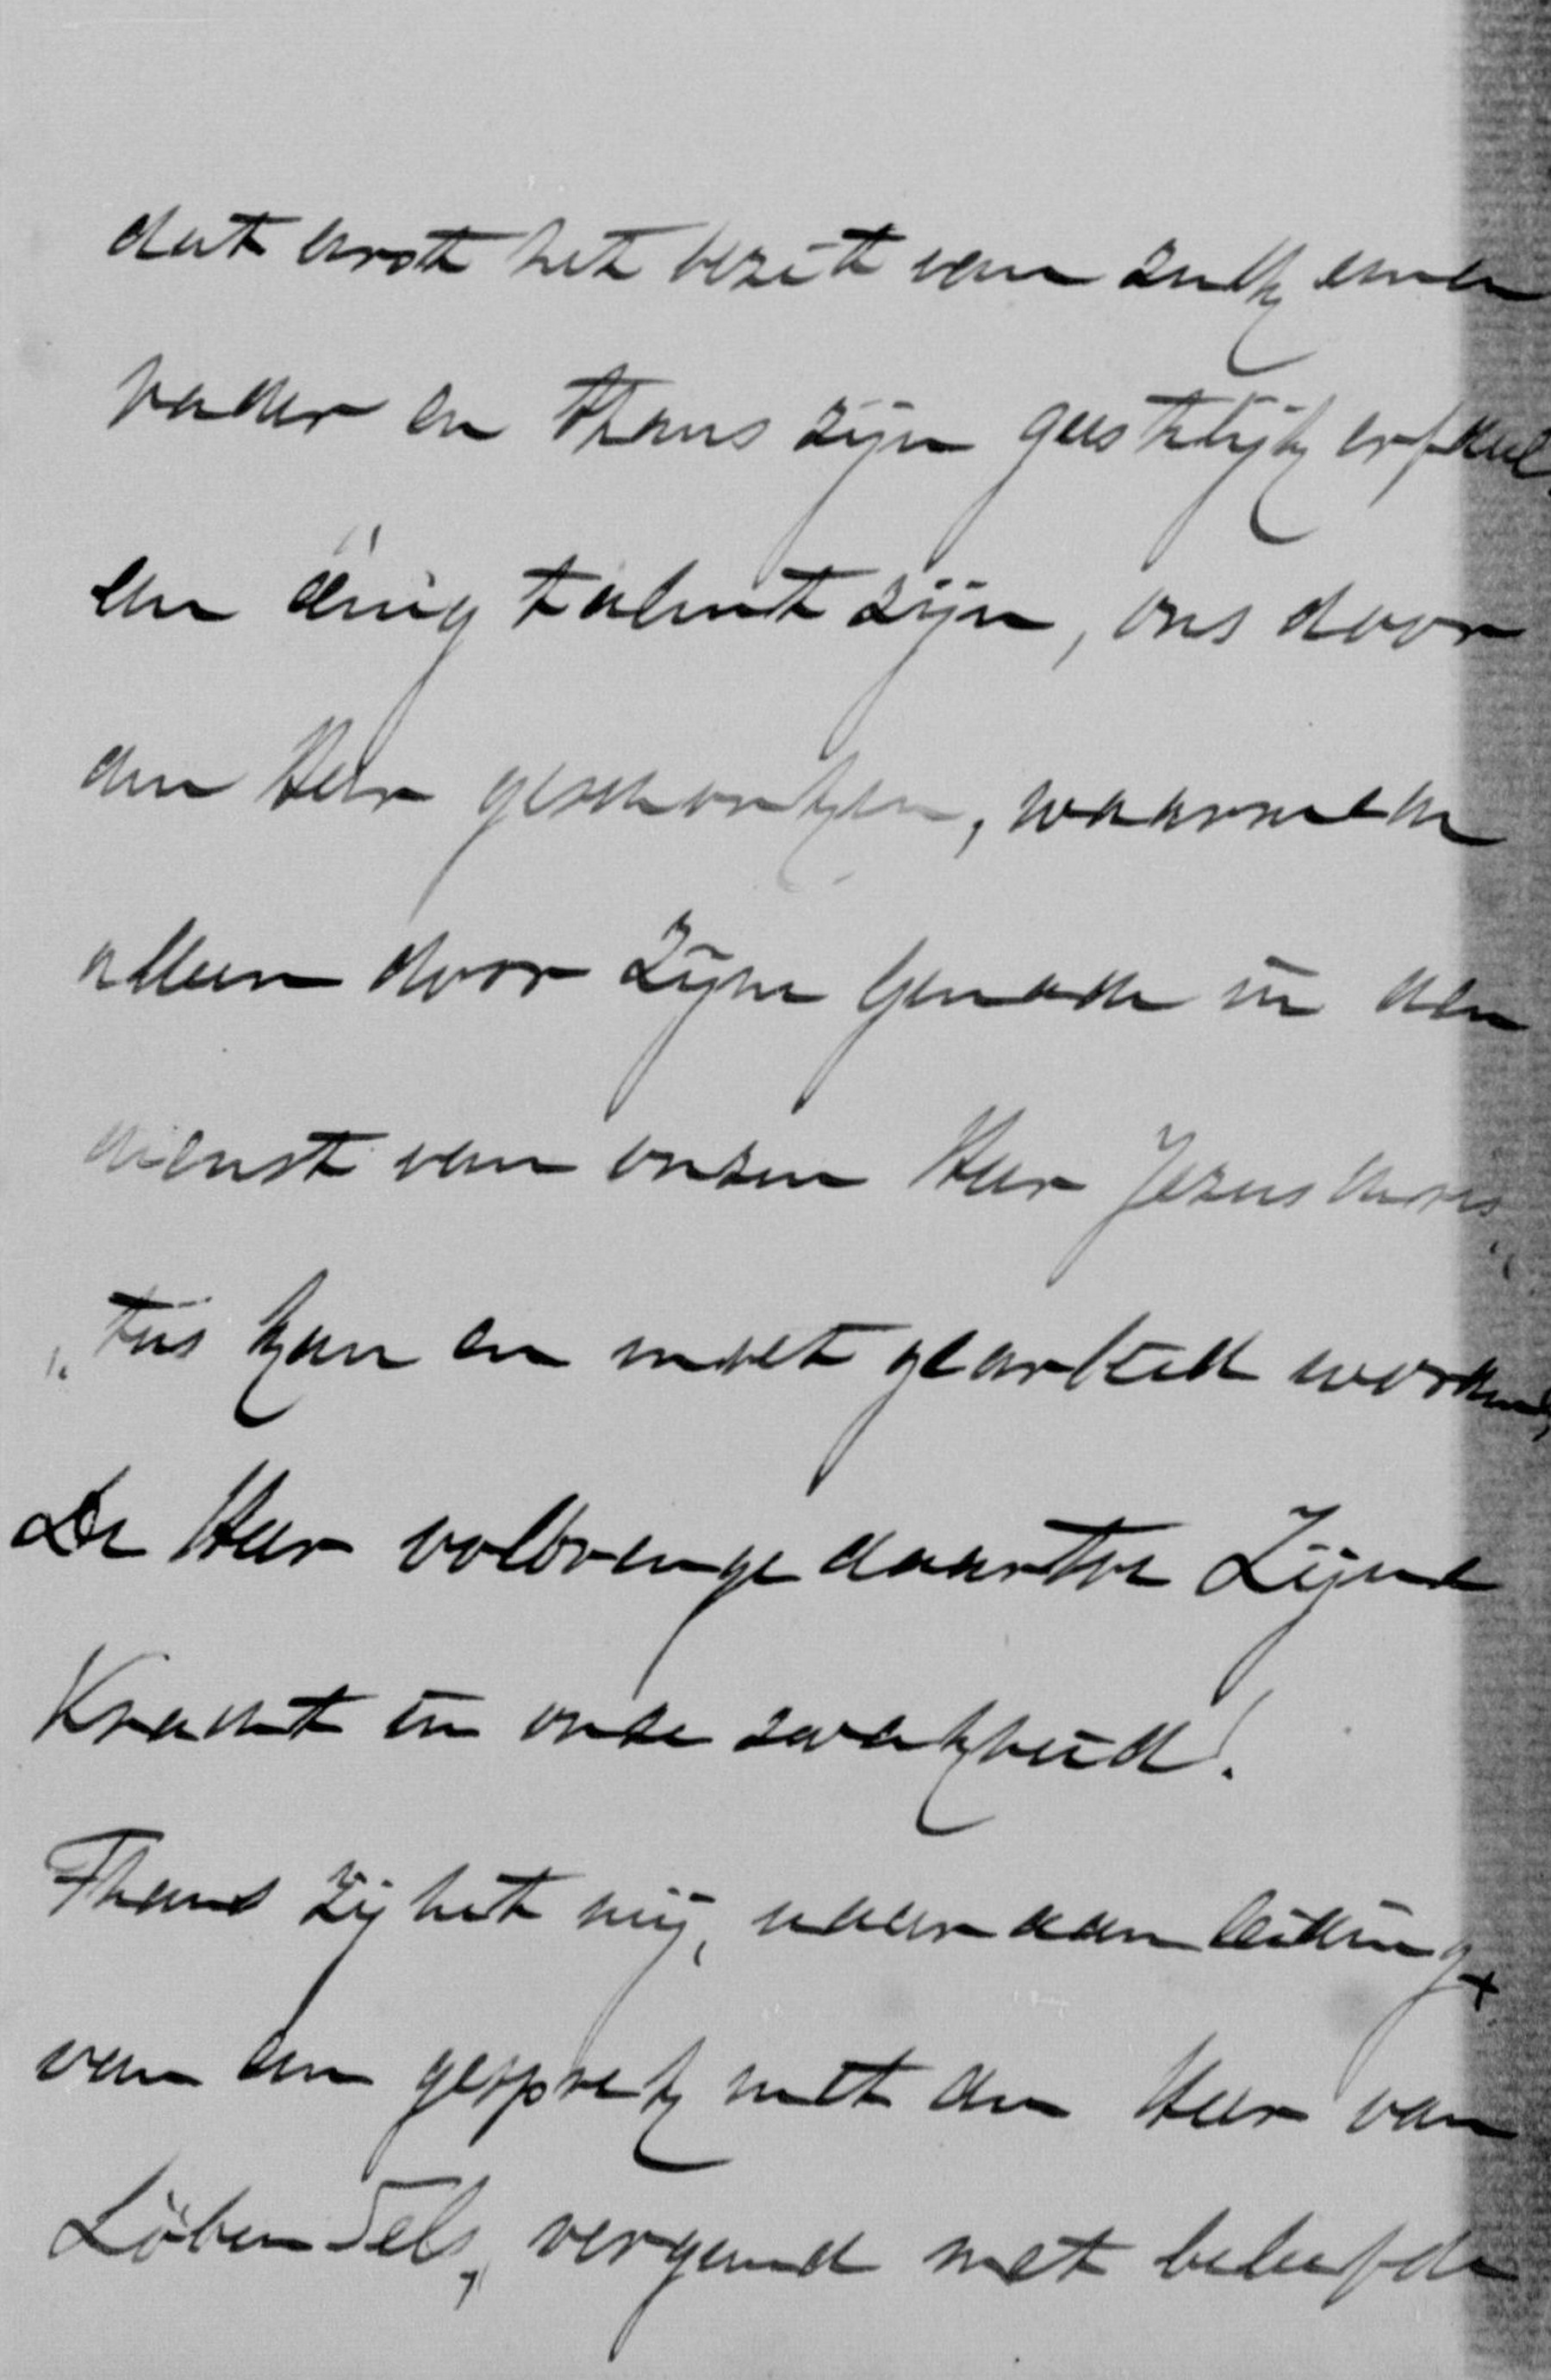 dat eerst het bezit van zulk eenen
vader en thans zijn geestelijk erfdeel
een eenig talent zijn, ons door
den Heer geschonken, waarmede
alleen door Zijne genade in den
dienst van onzen Heer Jezus Chris„
„tus kan en moet gearbeid worden,
De Heer volbrenge daartoe Zijne
Kracht in onze zwakheid!
Thans zij het mij, naar aanleiding
van een gesprek met den Heer van
Löben Sels, vergund met beleefde